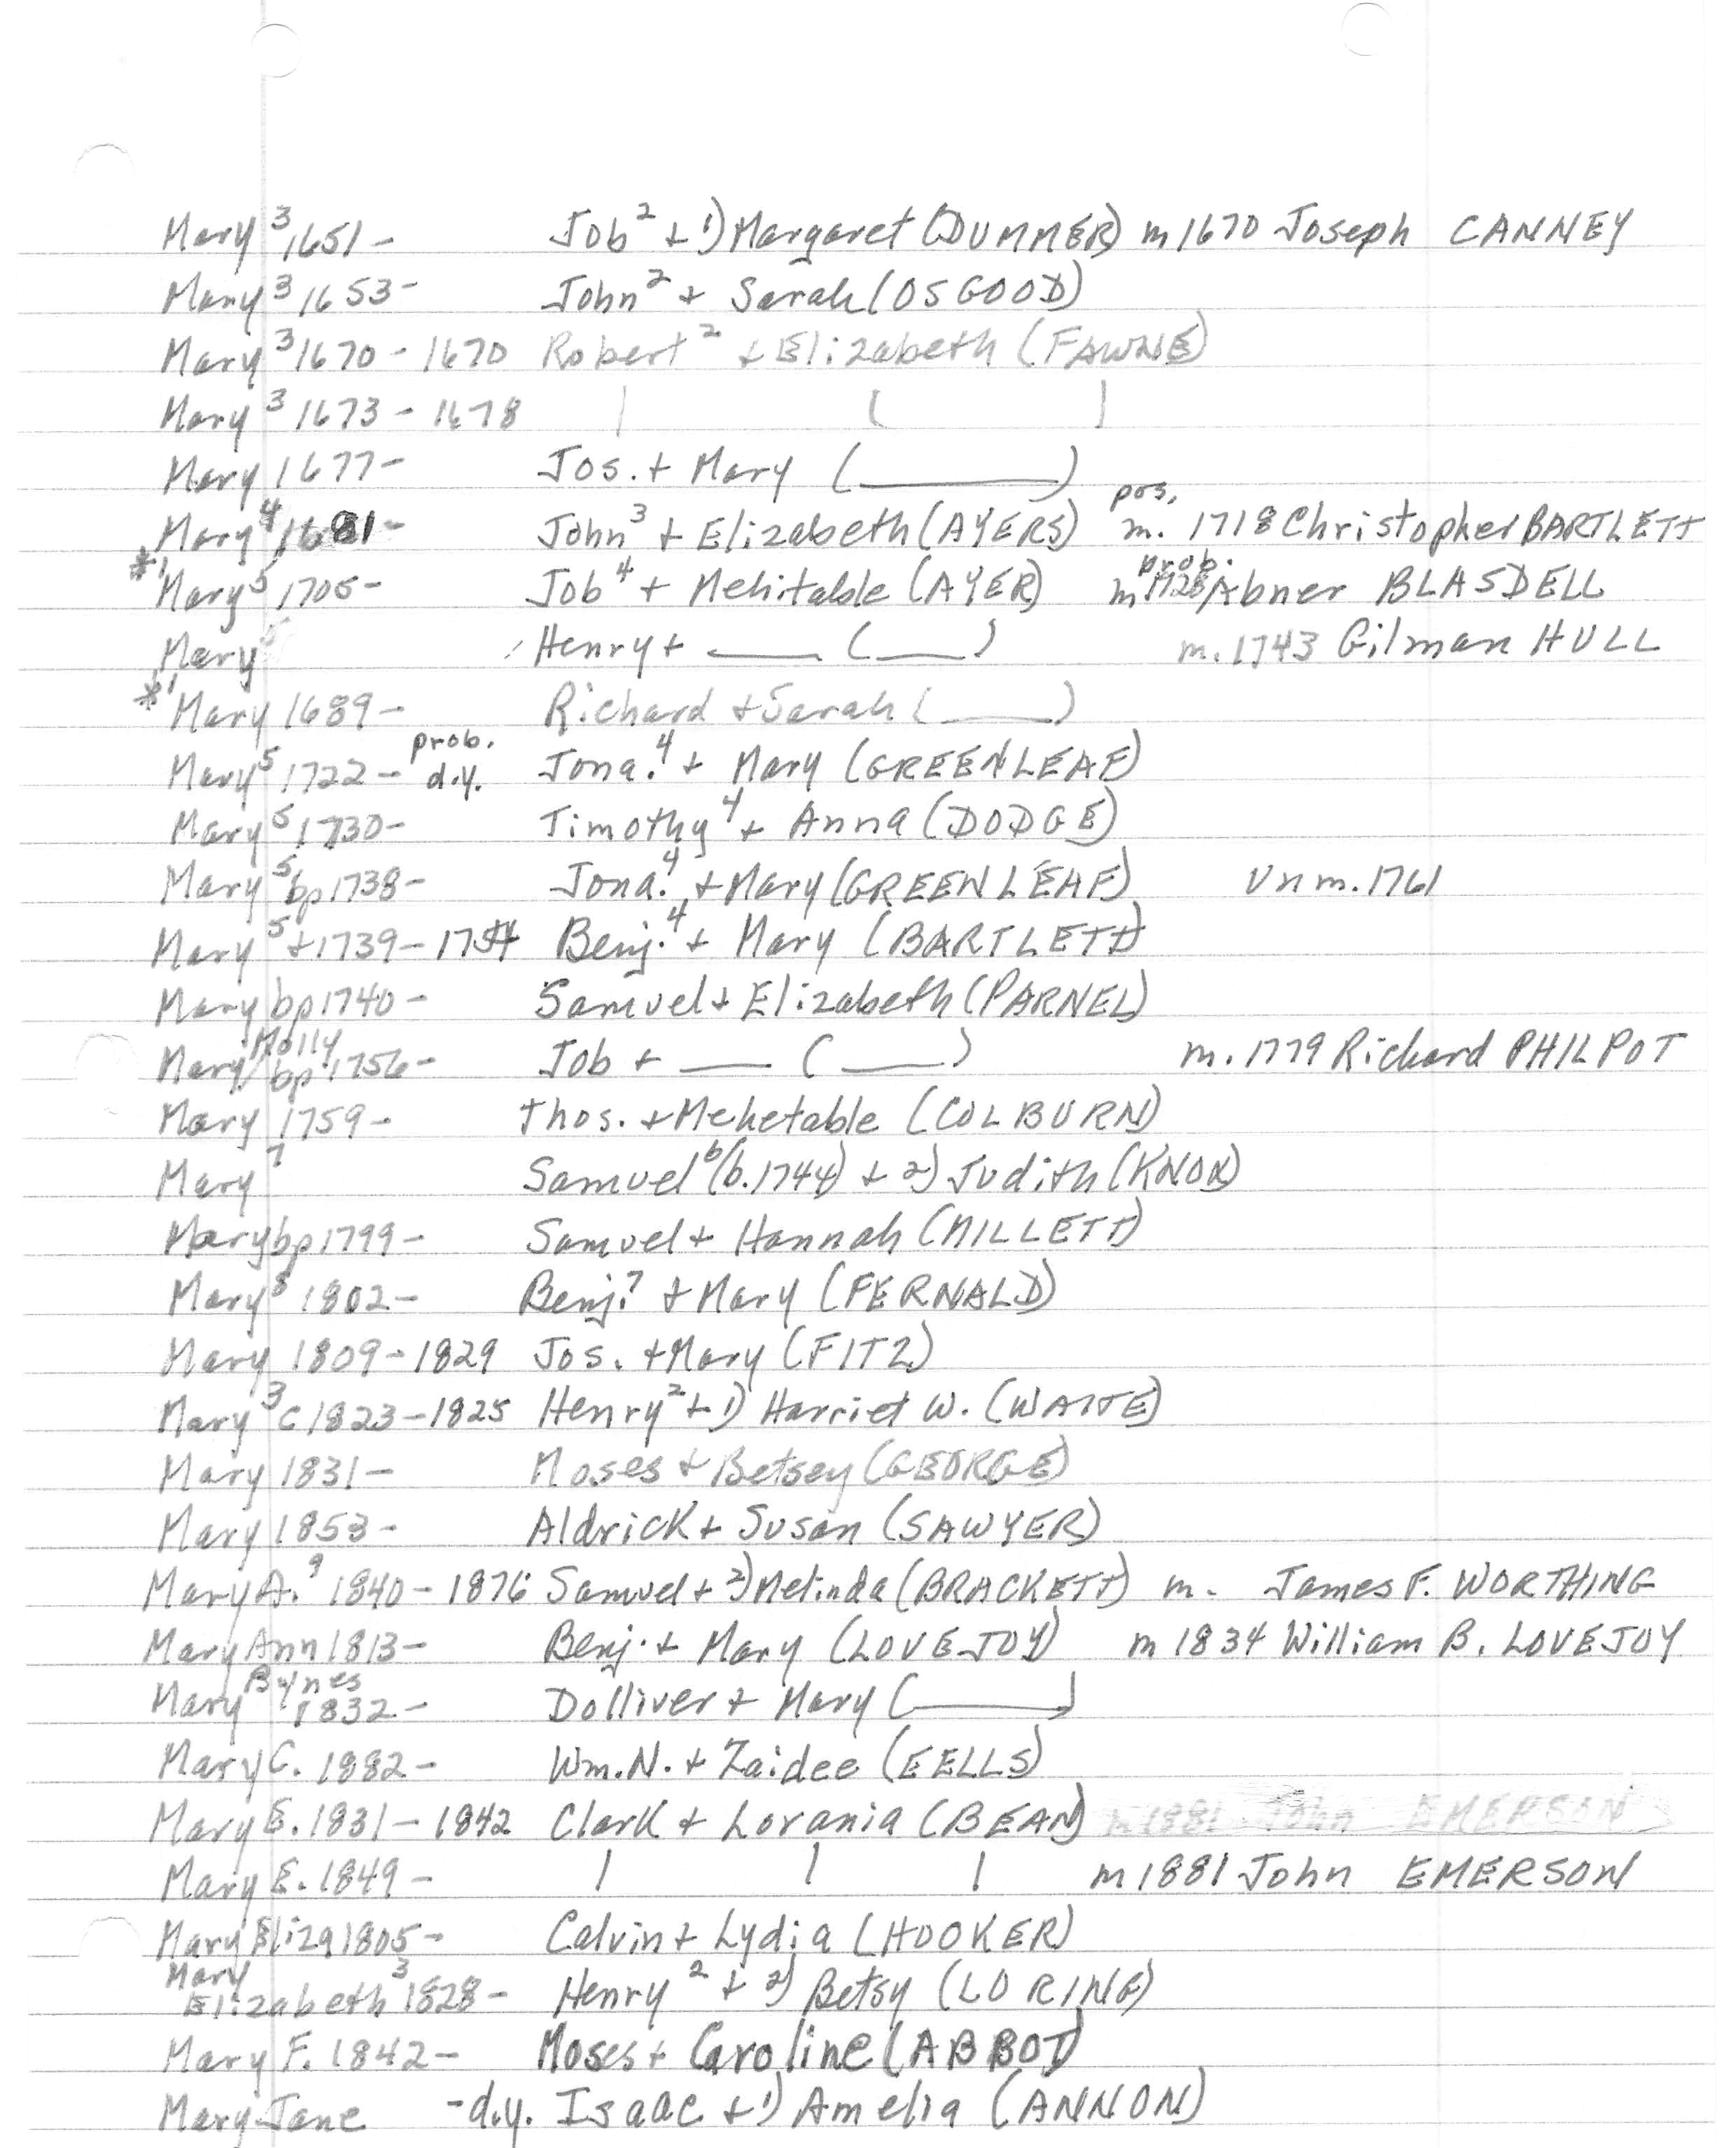 Mary³ 1651- Job² + 1) Margaret (DUMMER) m 1670 Joseph CANNEY
Mary³ 1653- John² + Sarah (OSGOOD)
Mary³ 1670 - 1670 Robert² + Elizabeth (FAWNE)
Mary³ 1673 - 1678 | ( |
Mary 1677- Jos. + Mary (______)
Mary⁴ 1681- John³ + Elizabeth (AYERS) pos. m. 1718 Christopher BARTLETT
*¹ Mary⁵ 1705- Job⁴ + Mehitable (AYER) prob. m 1728 Abner BLASDELL
Mary⁵ Henry + ____ (____) m. 1743 Gilman HULL
*¹ Mary 1689- Richard + Sarah (____)
Mary⁵ 1722- prob. d.y. Jona.⁴ + Mary (GREENLEAF)
Mary⁵ 1730- Timothy⁴ + Anna (DODGE)
Mary⁵ bp 1738- Jona.⁴ + Mary (GREENLEAF) Unm. 1761
Mary⁵ ±1739-1754 Benj.⁴ + Mary (BARTLETT)
Mary bp 1740- Samuel + Elizabeth (PARNEL)
Mary/Molly bp 1756- Job + ____ (____) m. 1779 Richard PHILPOT
Mary 1759- Thos. + Mehetable (COLBURN)
Mary⁷ Samuel⁶ (b. 1744) + 2) Judith (KNOX)
Mary bp 1799- Samuel + Hannah (MILLETT)
Mary⁸ 1802- Benj.⁷ + Mary (FERNALD)
Mary 1809-1829 Jos. + Mary (FITZ)
Mary³ c 1823-1825 Henry² + 1) Harriet W. (WAITE)
Mary 1831- Moses + Betsey (GEORGE)
Mary 1853- Aldrick + Susan (SAWYER)
Mary A.⁹ 1840-1876 Samuel + 2) Melinda (BRACKETT) m. James F. WORTHING
Mary Ann 1813- Benj. + Mary (LOVEJOY) m 1834 William B. LOVEJOY
Mary Bynes 1832- Dolliver + Mary (______)
Mary C. 1882- Wm. N. + Zaidee (EELLS)
Mary E. 1831-1842 Clark + Lorania (BEAN) m 1881 John EMERSON
Mary E. 1849- | | | m 1881 John EMERSON
Mary Eliza 1805- Calvin + Lydia (HOOKER)
Mary Elizabeth³ 1828- Henry² + 2) Betsy (LORING)
Mary F. 1842- Moses + Caroline (ABBOT)
Mary Jane -d.y. Isaac + 1) Amelia (ANNON)